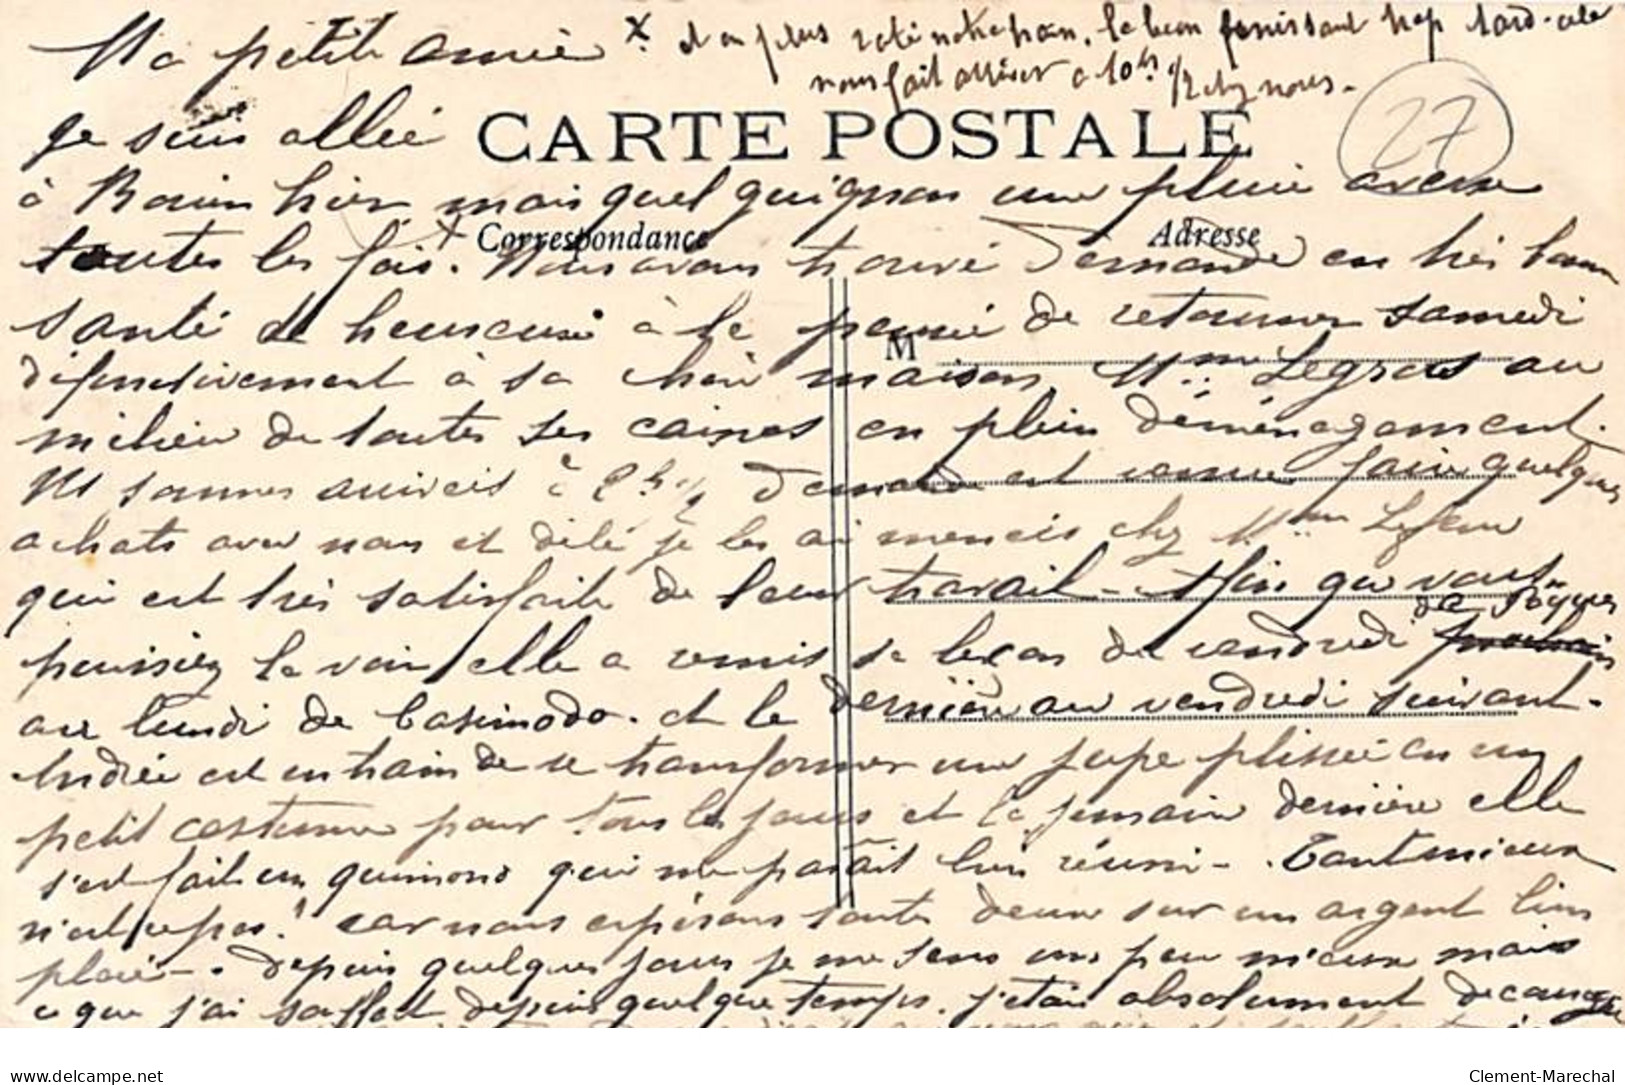 Ma petite amie x et en plus raté notre train, le bon finissant trop tard. cela
nous fait arriver a 10hs 1/2 chez nous.
Je suis allée
CARTE POSTALE
27
à Rouen hier mais quel guignon une pluie averse
Correspondance
Adresse
toutes les fois. Nous avons trouvé Fernande en très bonne
santé et heureuse à la pensée de retourner samedi
M
définitivement à sa chère maison, Mme Legros au
milieu de toutes ses caisses en plein déménagement.
Ns sommes arrivées à 2h 1/2 Fernande est venue faire quelques
achats avec nous et delà je les ai menées chez Mme
qui est très satisfaite de leur travail - Afin que vous
puissiez la voir, elle a remis sa leçon du vendredi de Pâques
au lundi de Casimodo. et la dernière au vendredi suivant -
Andrée est en train de se transformer une jupe plissée en un
petit costume pour tous les jours et la semaine dernière elle
s'est fait un guimono qui me paraît bien réussi - . Tant mieux
n'est ce pas! car nous espérons toutes deux sur un argent bien
placé - . Depuis quelques jours je me sens un peu mieux mais
ce que j'ai souffert depuis quelque temps. j'étais absolument découragée
Clement-Marechal
delcampe.net